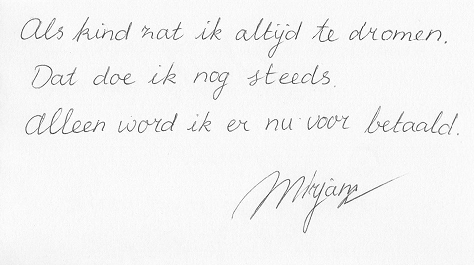 Als kind zat ik altijd te dromen.
Dat doe ik nog steeds.
Alleen word ik er nu voor betaald.
Mirjam